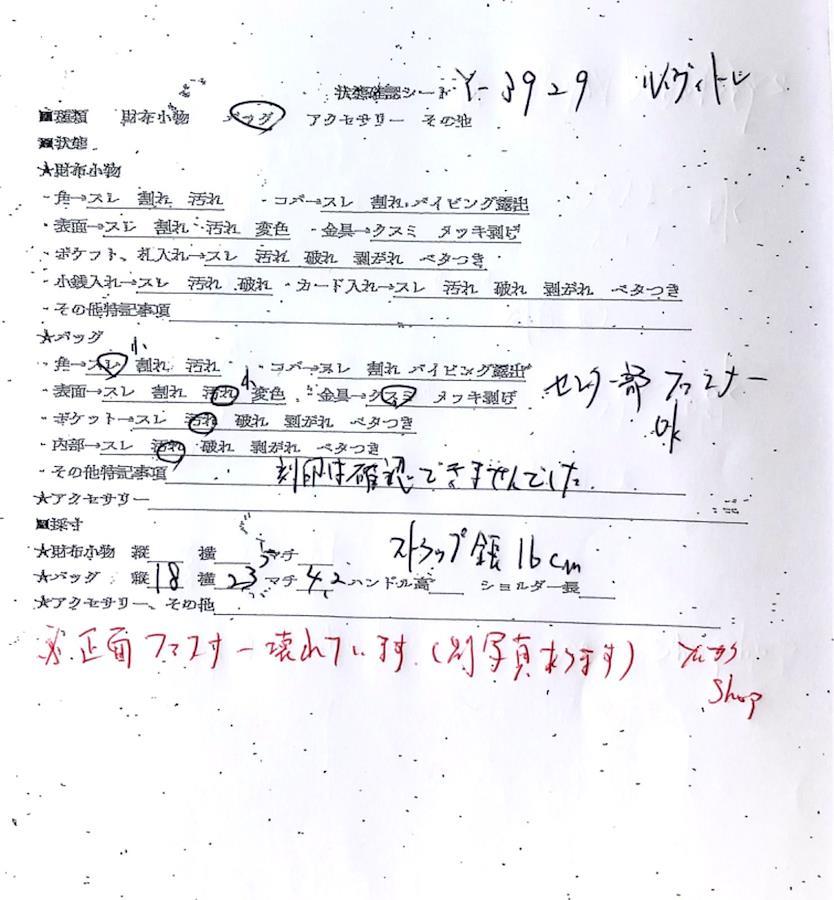 状態確認シート Y-3929 ルイヴィトン
■種類 財布小物 バッグ アクセサリー その他
■状態
★財布小物
・角→スレ 割れ 汚れ ・コバ→スレ 割れ パイピング露出
・表面→スレ 割れ 汚れ 変色 ・金具→クスミ メッキ剥げ
・ポケット、札入れ→スレ 汚れ 破れ 剥がれ ベタつき
・小銭入れ→スレ 汚れ 破れ ・カード入れ→スレ 汚れ 破れ 剥がれ ベタつき
・その他特記事項
★バッグ
小
・角→スレ 割れ 汚れ ・コバ→スレ 割れ パイピング露出
・表面→スレ 割れ 汚れ 小 変色 ・金具→クスミ メッキ剥げ センター部ファスナー
ok
・ポケット→スレ 汚れ 破れ 剥がれ ベタつき
・内部→スレ 汚れ 破れ 剥がれ ベタつき
・その他特記事項 刻印は確認できませんでした
★アクセサリー
■採寸
★財布小物 縦 横 マチ ストラップ全長16cm
★バッグ 縦18 横23 マチ4.2 ハンドル高 ショルダー長
★アクセサリー、その他
※正面ファスナー壊れています(別写真あります)
Shop